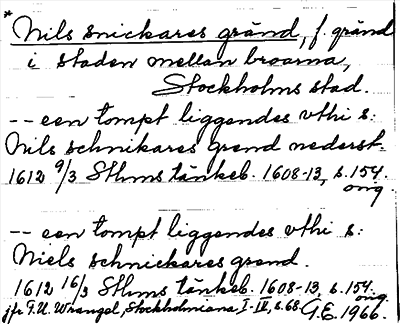 * Nils snickares gränd, f. gränd
i staden mellan broarna,
Stockholms stad.
-- een tompt liggendes vthi s:
Nils schnikares grend nederst.
1612 9/3 Sthms tänkeb. 1608-13, s. 154.
orig.
-- een tompt liggendes vthi s:
Niels schnickares grend.
1612 16/3 Sthms tänkeb. 1608-13, s. 154.
orig.
jfr F.U. Wrangel, Stockholmiana I-IV, s. 68. G.E. 1966.